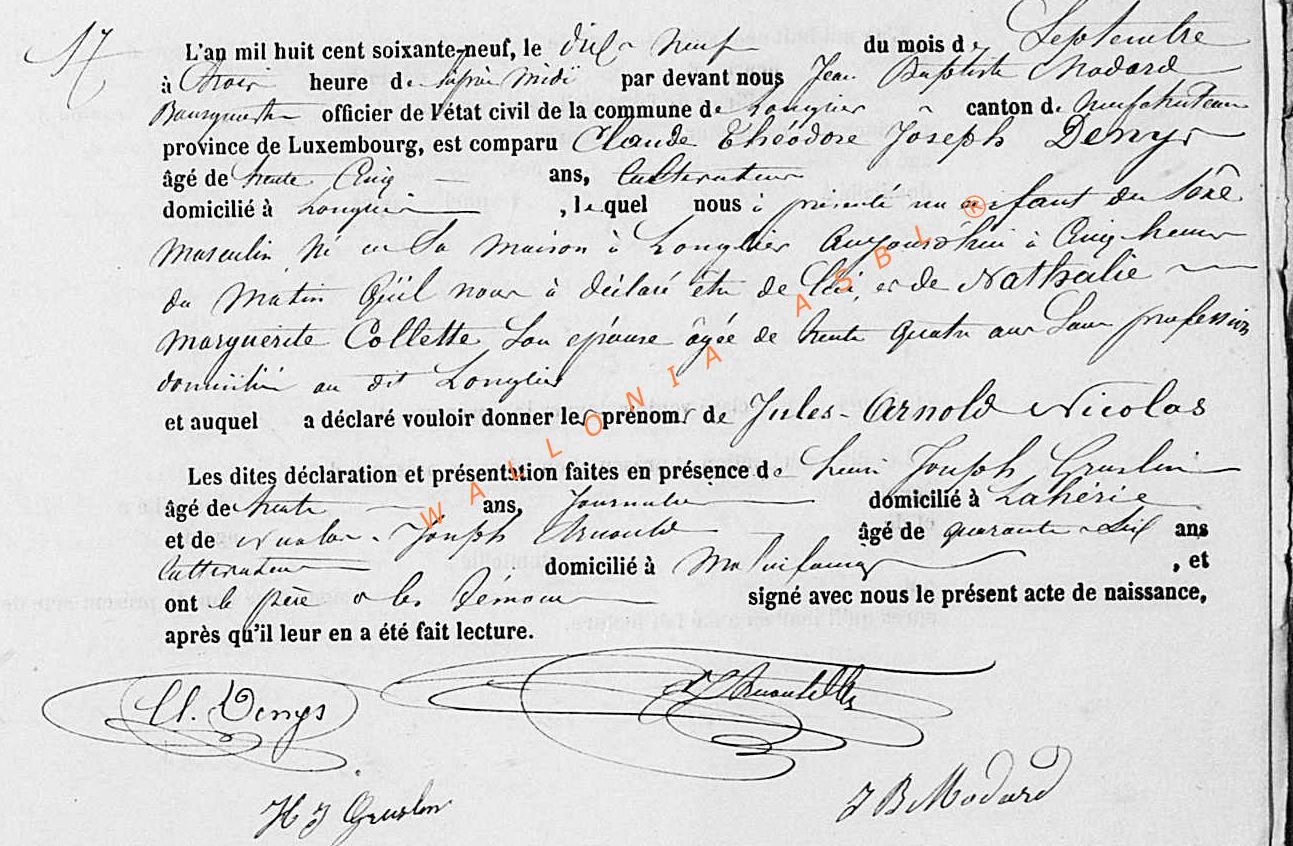 17
L'an mil huit cent soixante-neuf, le dix neuf du mois de Septembre
à trois heure de laprès midi par devant nous Jean Baptiste Modard
Bourgmestre officier de l'état civil de la commune de Longlier canton de Neufchateau
province de Luxembourg, est comparu Claude Théodore Joseph Denys
âgé de trente Cinq ans, Cultivateur
domicilié à Longlier, lequel nous à présenté un enfant du Sexe
masculin né en Sa maison à Longlier Aujourd'hui à Cinq heures
du matin Qu'il nous à déclaré être de lui, et de Nathalie
Marguerite Collette Son épouse âgée de trente quatre ans Sans profession
domiciliée au dit Longlier
et auquel a déclaré vouloir donner les prénoms de Jules-Arnold Nicolas
Les dites déclaration et présentation faites en présence de henri Joseph Gruslin
âgé de trente ans, Journalier domicilié à Lahérie
et de Nicolas Joseph Arnould âgé de quarante Six ans
Cultivateur domicilié à , et
ont le père et les témoins signé avec nous le présent acte de naissance,
après qu'il leur en a été fait lecture.
Cl. Denys
H J Gruslin
J B Modard
WALLONIA ASBL ®